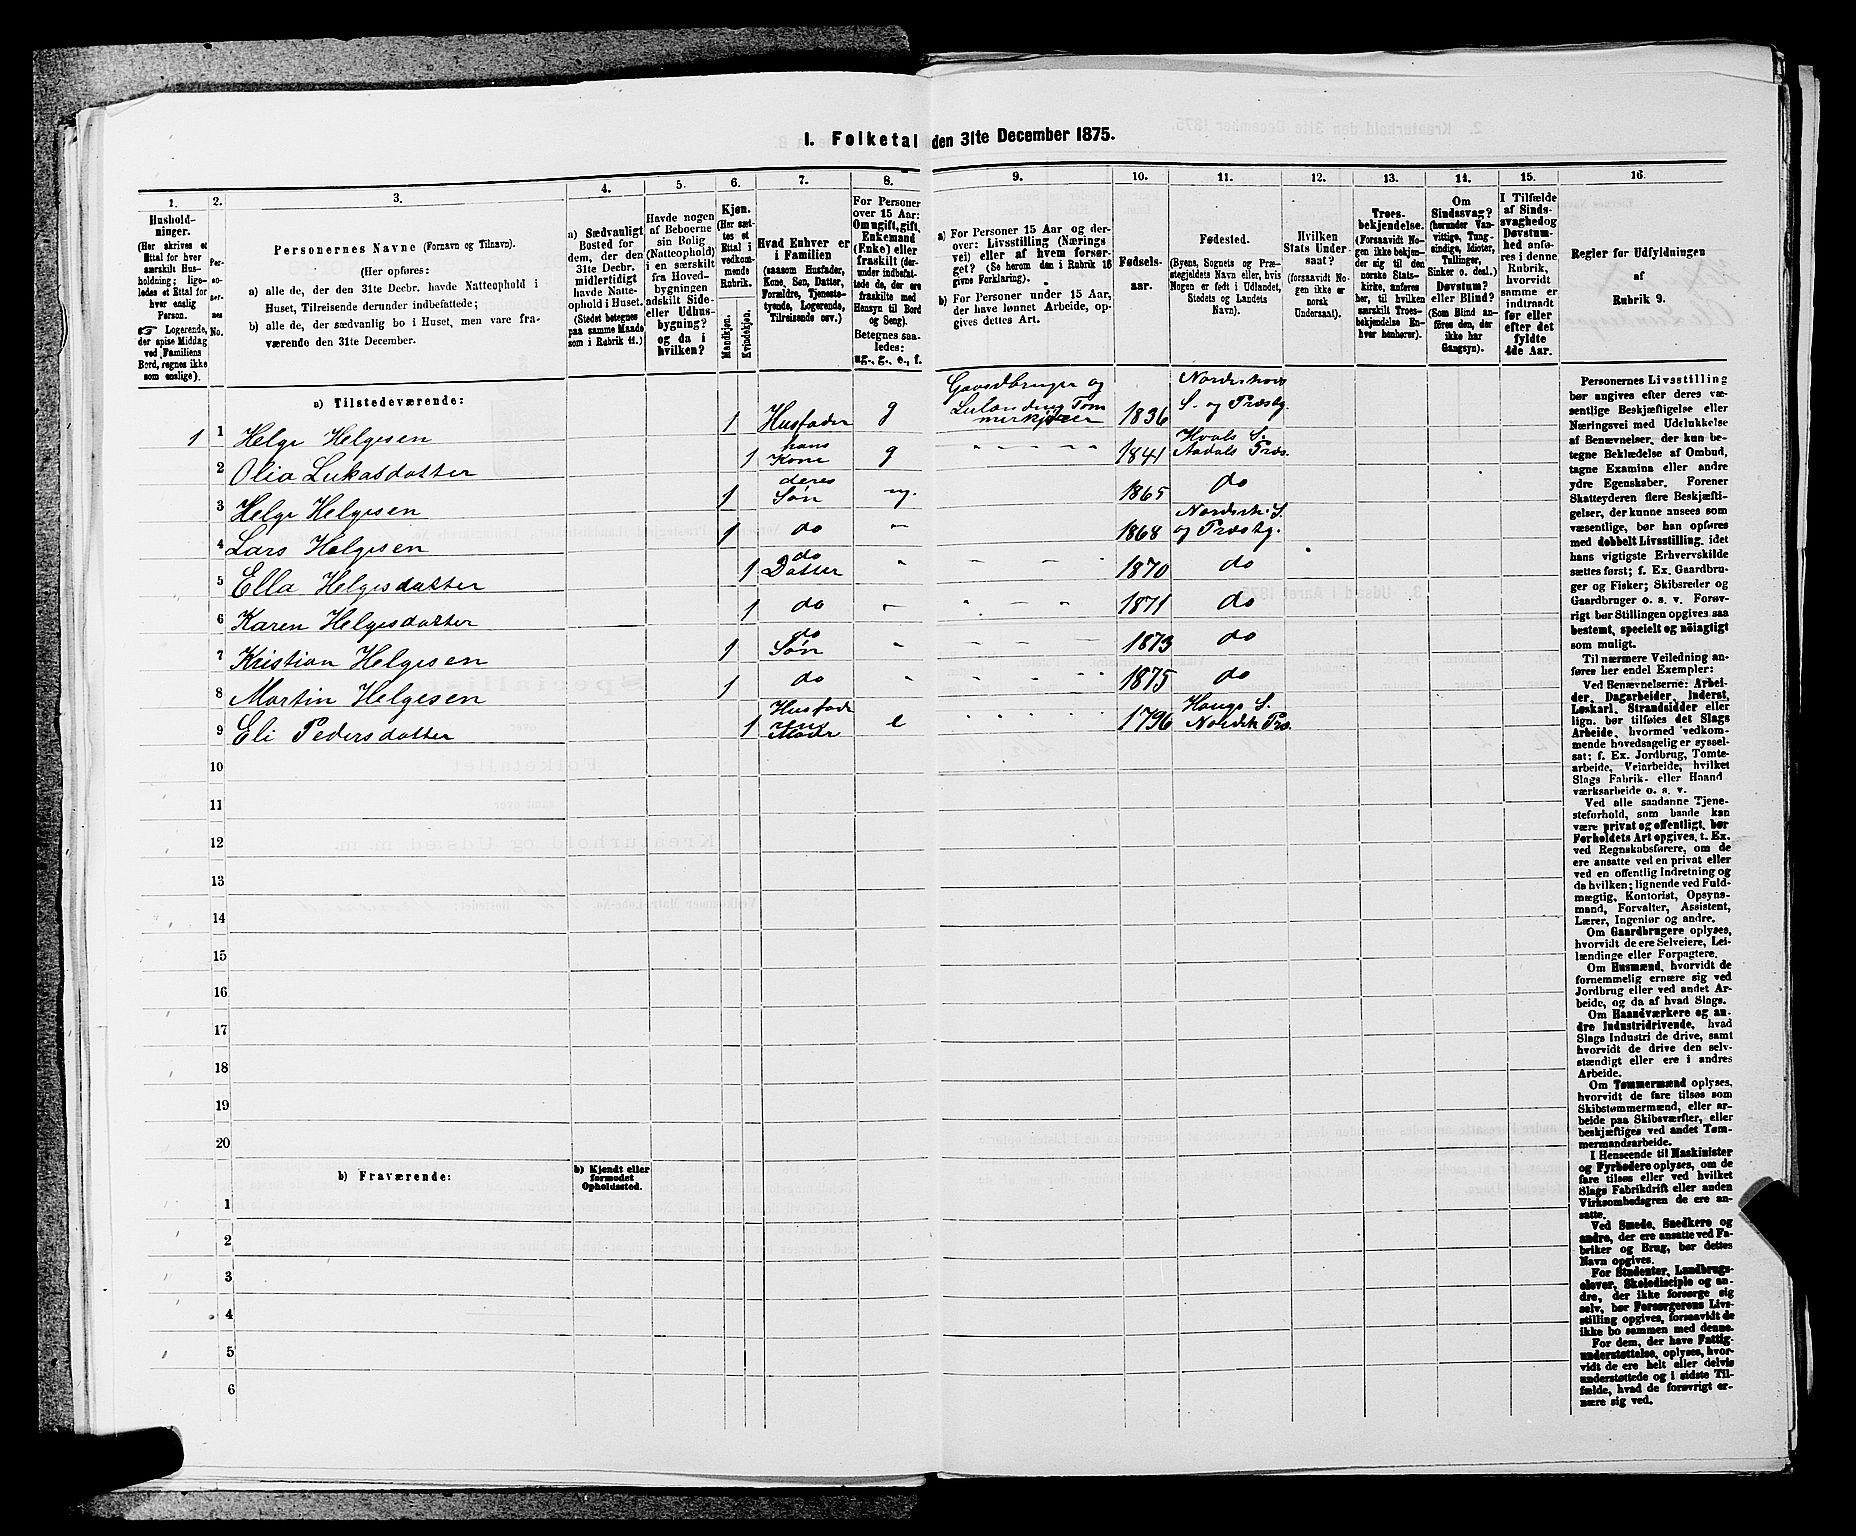 1. Folketal den 31te December 1875.
1. 2. 3. 4. 5. 6. 7. 8. 9. 10. 11. 12. 13. 14. 15. 16.
Hushold-
ninger.
(Her skrives et
Ettal for hver
særskilt Hus-
holdning; lige-
ledes et Ettal for
hver enslig
Person.
Logerende,
der spise Middag
ved Familiens
Bord, regnes ikke
som enslige).
Per-
so-
ner-
nes
No.
Personernes Navne (Fornavn og Tilnavn).
(Her opføres:
a) alle de, der den 31te Decbr. havde Natteophold i
Huset, Tilreisende derunder indbefattede;
b) alle de, der sædvanlig bo i Huset, men vare fra-
værende den 31te December.
a) Sædvanligt
Bosted for
dem, der den
31te Decbr.
midlertidigt
havde Natte-
ophold i Huset.
(Stedet betegnes
paa samme Maade
som i Rubrik 11.)
Havde nogen
af Beboerne
sin Bolig
(Natteophold)
i en særskilt
fra Hoved-
bygningen
adskilt Side-
eller Udhus-
bygning?
og da i
hvilken?
Kjøn.
(Her sæt-
tes et
Ettal i
vedkom-
mende
Rubrik.
Mandkjøn.
Kvindekjøn.
Hvad Enhver er
i Familien
(saasom Husfader,
Kone, Søn, Datter,
Forældre, Tjeneste-
tyende, Logerende,
Tilreisende osv.)
For Personer
over 15 Aar:
Om ugift, gift,
Enkemand
(Enke) eller
fraskilt (der-
under indbefat-
tede de, der ere
fraskilte med
Hensyn til Bord
og Seng).
Betegnes saa-
ledes:
ug., g., e., f.
a) For Personer 15 Aar og der-
over: Livsstilling (Nærings-
vei) eller af hvem forsør-
get? (Se herom den i Rubrik 16
givne Forklaring).
b) For Personer under 15 Aar,
der have lønnet Arbeide, op-
gives dettes Art.
Fødsels-
aar.
Fødested.
(Byens, Sognets og Præ-
stegjeldets Navn eller, hvis
Nogen er født i Udlandet,
Stedets og Landets
Navn).
Hvilken
Stats Under-
saat?
(forsaavidt No-
gen ikke er
norsk
Undersaat).
Troes-
bekjendelse.
(Forsaavidt No-
gen ikke bekjen-
der sig til den
norske Stats-
kirke, anføres
her, til hvilken
særskilt Troes-
bekjendelse En-
hver henhører).
Om
Sindssvag?
(herunder Van-
vittige, Tung-
sindige, Idioter,
Tullinger,
Sinker o. desl.)
Døvstum?
eller Blind?
(Som Blind an-
føres den, der
ikke har
Gangsyn).
I Tilfælde
af Sinds-
svaghed og
Døvstum-
hed anfø-
res i denne
Rubrik,
hvorvidt
samme er
indtraadt
før eller
efter det
fyldte
4de Aar.
Regler for Udfyldningen
af
Rubrik 9.
a) Tilstedeværende:
1 1 Helge Helgesen 1 Husfader g Gaardbruger og Leilænding Tømmerkjører 1836 Norderhovs S. og Præstg.
2 Olia Lukasdatter 1 hans Kone g " " " " 1841 Hvals S. Aadals Præs.
3 Helge Helgesen 1 deres Søn ug. 1865 do
4 Lars Helgesen 1 do " 1868 Norderh. S. og Præstg.
5 Ella Helgesdatter 1 do Datter " " " " 1870 do
6 Karen Helgesdatter 1 do " " " " 1871 do
7 Kristian Helgesen 1 do Søn " " " " 1873 do
8 Martin Helgesen 1 do " " " " " 1875 do
9 Eli Pedersdatter 1 Husfaderens Moder e " " " " 1796 Haugs S. Nordrh Præ.
10
11
12
13
14
15
16
17
18
19
20
b) Fraværende:
b) Kjendt eller
formodet
Opholdssted.
1
2
3
4
5
6
Personernes Livsstilling
bør angives efter deres væ-
sentlige Beskjæftigelse eller
Næringsvei med Udelukkelse
af Benævnelser, der kun be-
tegne Beklædelse af Ombud,
tagne Examina eller andre
ydre Egenskaber. Forener
Skatteyderen flere Beskjæfti-
gelser, der kunne ansees som
væsentlige, bør han opføres
med dobbelt Livsstilling, idet
hans vigtigste Erhvervskilde
sættes først; f. Ex. Gaardbru-
ger og Fisker; Skibsreder og
Gaardbruger o. s. v. Forøv-
rigt bør Stillingen opgives saa
bestemt, specielt og nøiagtigt
som muligt.
Til nærmere Veiledning an-
føres her endel Exempler:
Ved Benævnelserne: Arbei-
der, Dagarbeider, Inderst,
Løskarl, Strandsidder eller
lign. bør tilføies det Slags
Arbeide, hvormed vedkom-
mende hovedsagelig er syssel-
sat; f. Ex. Jordbrug, Tomte-
arbeide, Veiarbeide, hvilket
Slags Fabrik- eller Haand
værksarbeide o. s. v.
Ved alle saadanne Tjene-
steforhold, som baade kan
være privat og offentligt, bør
Forholdets Art opgives, t. Ex.
ved Regnskabsførere, om de
ere ansatte ved en privat eller
ved en offentlig Indretning og
da hvilken; lignende ved Fuld-
mægtig, Kontorist, Opsyns-
mand, Forvalter, Assistent,
Lærer, Ingeniør og andre.
Om Gaardbrugere oplyses,
hvorvidt de ere Selveiere, Lei-
lændinge eller Forpagtere.
Om Husmænd, hvorvidt de
fornemmelig ernære sig ved
Jordbrug eller ved andet Ar-
beide, og da af hvad Slags.
Om Haandværkere og an-
dre Industridrivende, hvad
Slags Industri de drive, samt
hvorvidt de drive den selv-
stændigt eller ere i andres
Arbeide.
Om Tømmermænd oplyses,
hvorvidt de fare tilsøs som
Skibstømmermænd, eller ar-
beide paa Skibsværfter, eller
beskjæftiges ved andet Tøm-
mermandsarbeide.
I Henseende til Maskinister
og Fyrbødere oplyses, om de
fare tilsøs eller ved hvilket
Slags Fabrikdrift eller anden
Virksomhedsgren de ere an-
satte.
Ved Smede, Snedkere og
andre, der ere ansatte ved Fa-
briker og Brug, bør dettes
Navn opgives.
For Studenter, Landbrugs-
elever, Skoledisciple og an-
dre, der ikke forsørge sig
selv, bør Forsørgerens Livs-
stilling opgives, forsaavidt de
ikke bo sammen med denne.
For dem, der have Fattig-
understøttelse, oplyses, hvor-
vidt de ere helt eller delvis
understøttede og i sidste Til-
fælde, hvad de forøvrigt er-
nære sig ved.